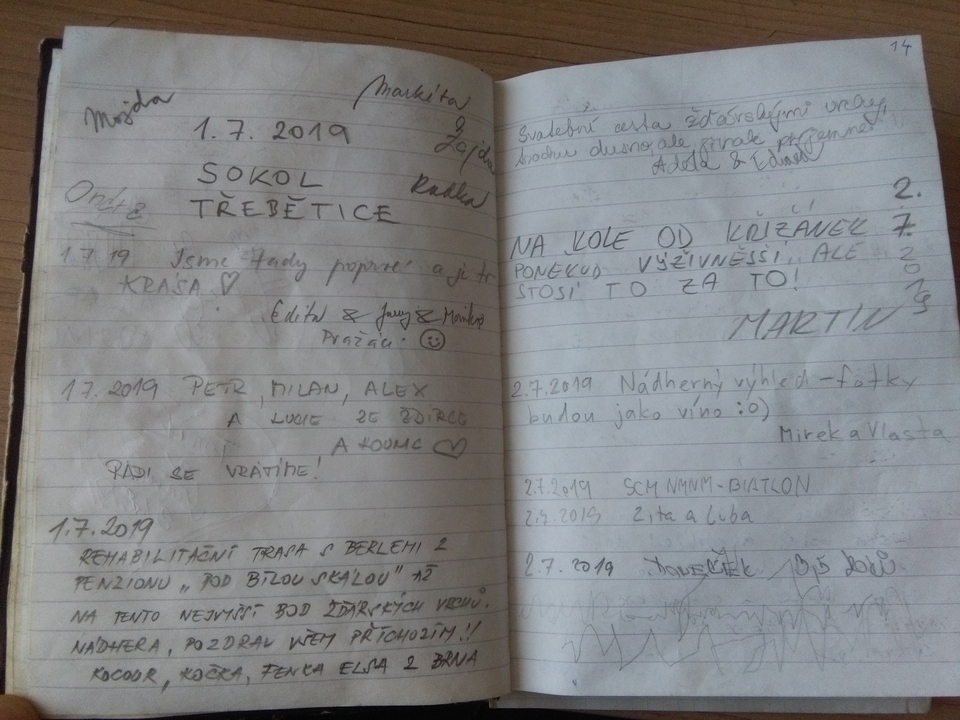 Mojda
Markéta
1.7.2019
Zajda
SOKOL
Radka
TŘEBĚTICE
1.7.19 Jsme tady poprvé a je to
KRÁSA ♡
Edita & Jury &
Pražáci ☺
1.7.2019 PETR, MILAN, ALEX
A LUCIE ZE ŽDÍRCE
A ♡
RÁDI SE VRÁTÍME!
1.7.2019
REHABILITAČNÍ TRASA S BERLEMI Z
PENZIONU „POD BÍLOU SKÁLOU" AŽ
NA TENTO NEJVYŠŠÍ BOD ŽĎÁRSKÝCH VRCHŮ.
NÁDHERA, POZDRAV VŠEM PŘÍCHOZÍM!!
KOCOUR, KOČKA, FENKA ELSA Z BRNA
14
Svatební cesta žďárskými vrchy,
trochu dusno, ale jinak příjemné!
Adéla &
2.
7.
2019
NA KOLE OD KŘIŽÁNEK
PONĚKUD VÝŽIVNĚJŠÍ, ALE
STOJÍ TO ZA TO!
MARTIN
2.7.2019 Nádherný výhled - fotky
budou jako víno :o)
Mirek a Vlasta
2.7.2019 SCM NMNM - BIATLON
2.7.2019 Zita a Luba
2.7.2019 TONEČEK 3,5 roků